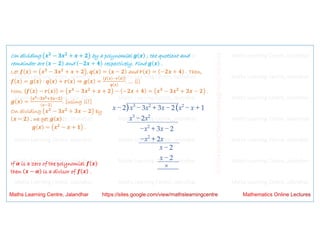 On dividing (x³ − 3x² + x + 2) by a polynomial g(x), the quotient and
remainder are (x − 2) and (−2x + 4) respectively. Find g(x).
Let f(x) = (x³ − 3x² + x + 2), q(x) = (x − 2) and r(x) = (−2x + 4). Then,
f(x) = g(x) · q(x) + r(x) ⇒ g(x) = {f(x)−r(x)}/q(x) ... (i)
Now, {f(x) − r(x)} = (x³ − 3x² + x + 2) − (−2x + 4) = (x³ − 3x² + 3x − 2).
g(x) = (x³−3x²+3x−2)/(x−2) [using (i)]
On dividing (x³ − 3x² + 3x − 2) by
(x − 2), we get g(x):
g(x) = (x² − x + 1).
x−2)x³−3x²+3x−2(x²−x+1
x³−2x²
−x²+3x−2
−x²+2x
x−2
x−2
×
If α is a zero of the polynomial f(x)
then (x − α) is a divisor of f(x).
Maths Learning Centre, Jalandhar https://sites.google.com/view/mathslearningcentre Mathematics Online Lectures